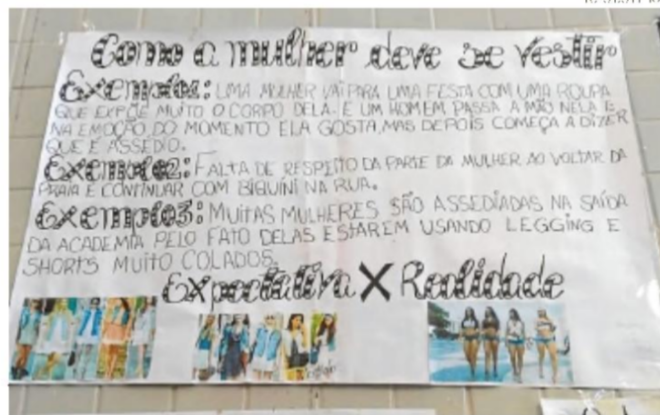 Como a mulher deve se vestir
Exemplo1: UMA MULHER VAI PARA UMA FESTA COM UMA ROUPA
QUE EXPÕE MUITO O CORPO DELA. E UM HOMEM PASSA A MÃO NELA E
NA EMOÇÃO DO MOMENTO ELA GOSTA, MAS DEPOIS COMEÇA A DIZER
QUE É ASSÉDIO.
Exemplo2: FALTA DE RESPEITO DA PARTE DA MULHER AO VOLTAR DA
PRAIA E CONTINUAR COM BIQUÍNI NA RUA.
Exemplo3: MUITAS MULHERES SÃO ASSEDIADAS NA SAÍDA
DA ACADEMIA PELO FATO DELAS ESTAREM USANDO LEGGING E
SHORTS MUITO COLADOS.
Expectativa X Realidade